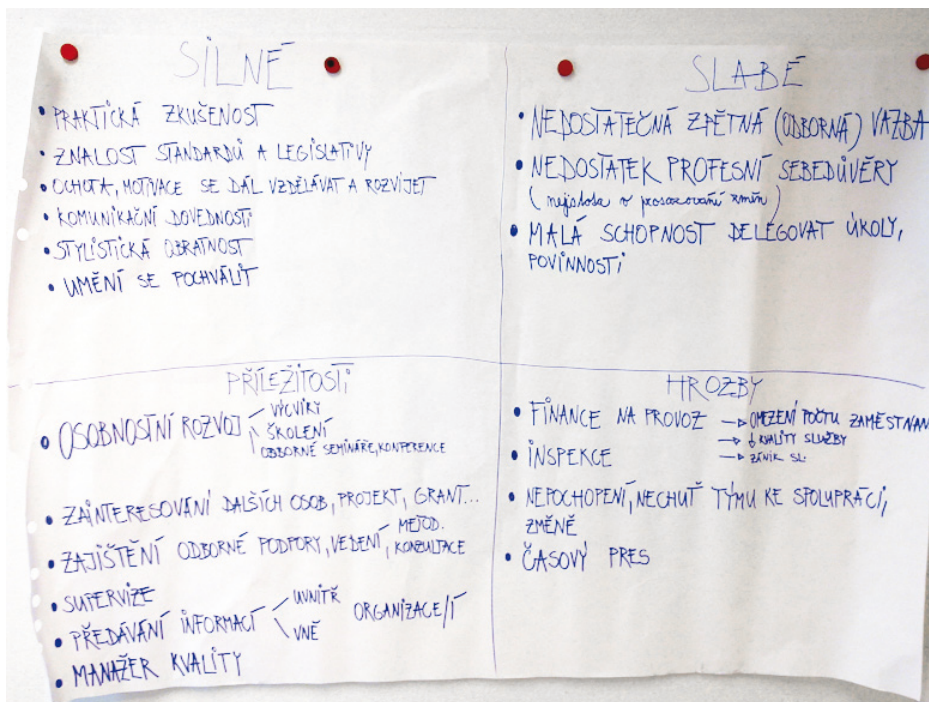 SILNÉ
• PRAKTICKÁ ZKUŠENOST
• ZNALOST STANDARDŮ A LEGISLATIVY
• OCHOTA, MOTIVACE SE DÁL VZDĚLÁVAT A ROZVÍJET
• KOMUNIKAČNÍ DOVEDNOSTI
• STYLISTICKÁ OBRATNOST
• UMĚNÍ SE POCHVÁLIT
SLABÉ
• NEDOSTATEČNÁ ZPĚTNÁ (ODBORNÁ) VAZBA
• NEDOSTATEK PROFESNÍ SEBEDŮVĚRY
(nejistota v prosazování změn)
• MALÁ SCHOPNOST DELEGOVAT ÚKOLY,
POVINNOSTI
PŘÍLEŽITOSTI
• OSOBNOSTNÍ ROZVOJ
VÝCVIKY
ŠKOLENÍ
ODBORNÉ SEMINÁŘE, KONFERENCE
• ZAINTERESOVÁNÍ DALŠÍCH OSOB, PROJEKT, GRANT...
• ZAJIŠTĚNÍ ODBORNÉ PODPORY, VEDENÍ, METOD.
KONZULTACE
• SUPERVIZE
• PŘEDÁVÁNÍ INFORMACÍ
UVNITŘ
VNĚ
ORGANIZACE/Í
• MANAŽER KVALITY
HROZBY
• FINANCE NA PROVOZ → OMEZENÍ POČTU ZAMĚSTNAN
→ ↓ KVALITY SLUŽBY
→ ZÁNIK SL.
• INSPEKCE
• NEPOCHOPENÍ, NECHUŤ TÝMU KE SPOLUPRÁCI,
ZMĚNĚ
• ČASOVÝ PRES